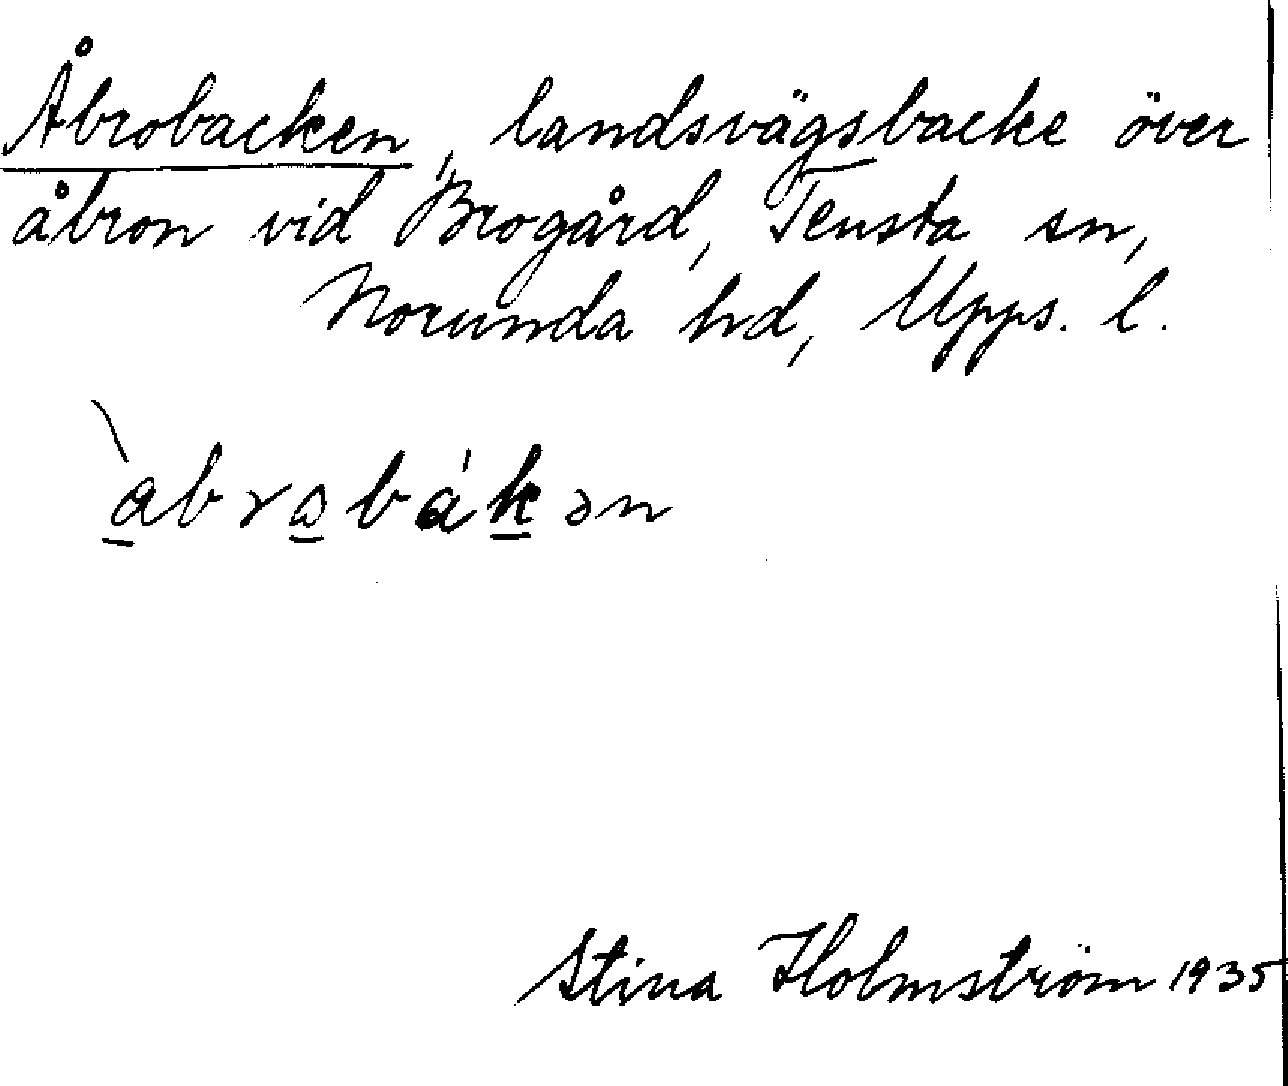 Åbrobacken, landsvägsbacke över
åbron vid Brogård, Tensta sn,
Norunda hd, Upps. l.
Stina Holmström 1935